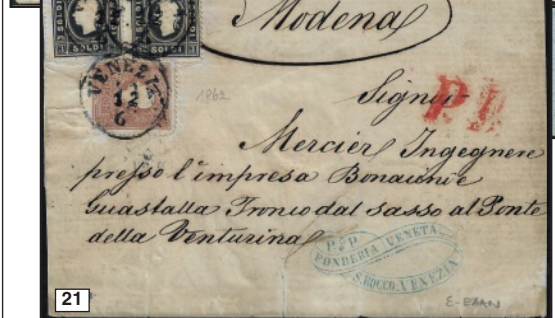 3 SOLDI 3 SOLDI
Modena
VENEZIA
12
6
1862
Signor
P.D.
Mercier Ingegnere
presso l'impresa Bonaiuni e
Guastalla Tronco dal sasso al Ponte
della Venturina
P&P
FONDERIA VENETA
S. ROCCO. VENEZIA
21